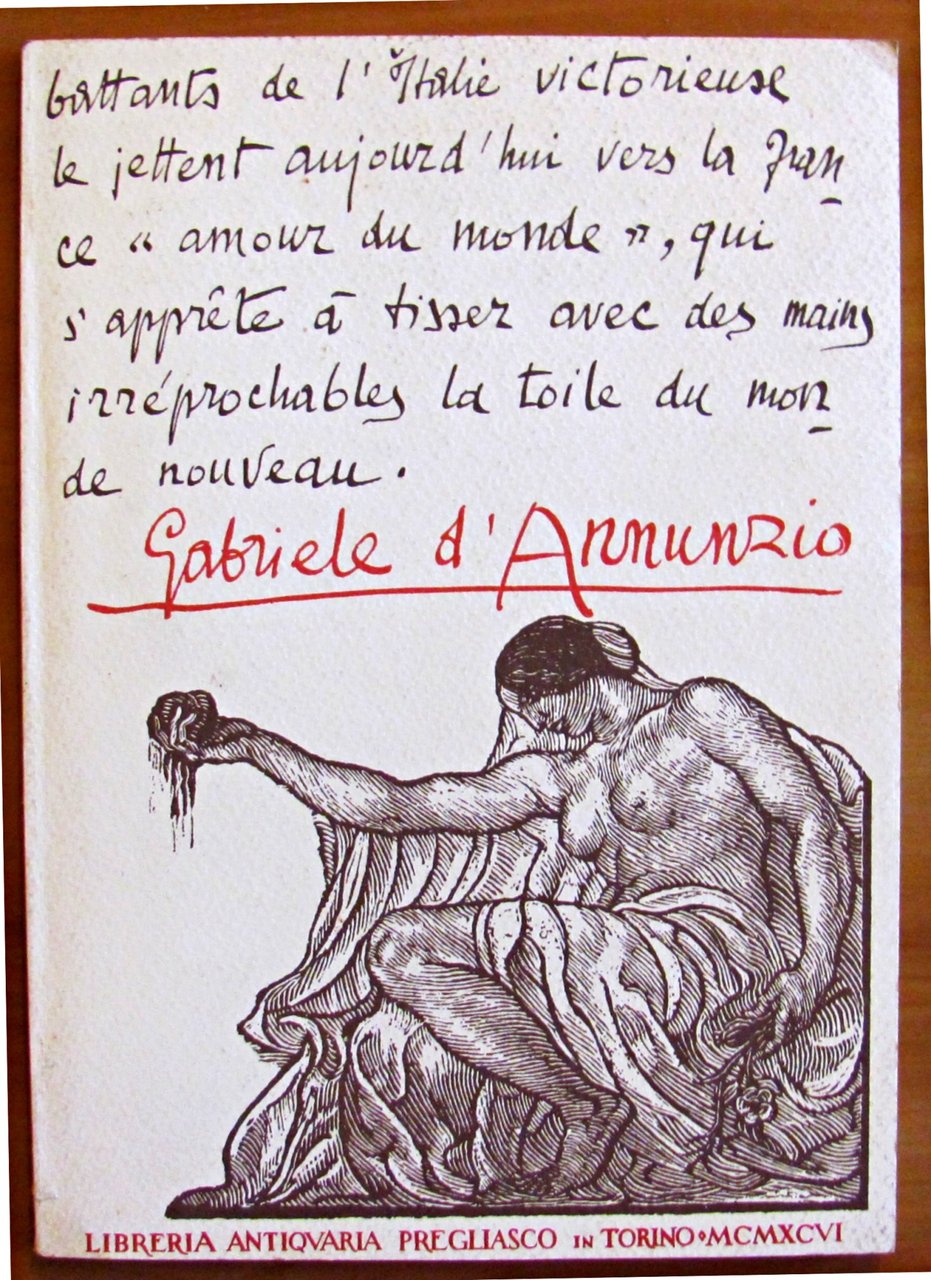 battants de l'Italie victorieuse
le jettent aujourd'hui vers la Fran
ce “ amour du monde ”, qui
s'apprête à tisser avec des mains
irréprochables la toile du mon
de nouveau.
Gabriele d'Annunzio
LIBRERIA ANTIQVARIA PREGLIASCO IN TORINO⋄MCMXCVI